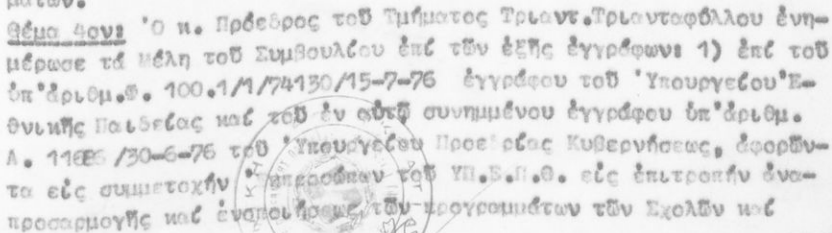 μάτων.
Θέμα 4ον: Ὁ κ. Πρόεδρος τοῦ Τμήματος Τριαντ.Τριανταφύλλου ἐνη-
μέρωσε τά Μέλη τοῦ Συμβουλίου ἐπί τῶν ἑξῆς ἐγγράφων: 1) ἐπί τοῦ
ὑπ'ἀριθμ.Φ. 100.1/1/74130/15-7-76 ἐγγράφου τοῦ Ὑπουργείου Ἐ-
θνικῆς Παιδείας καί τοῦ ἐν αὐτῷ συνημμένου ἐγγράφου ὑπ'ἀριθμ.
Λ. /30-6-76 τοῦ Ὑπουργείου Προεδρίας Κυβερνήσεως, ἀφορῶν-
τα εἰς συμμετοχήν τοῦ ΥΠ.Ε.Π.Θ. εἰς ἐπιτροπήν ἀνα-
προσαρμογῆς καί ἐνοποιήσεως τῶν προγραμμάτων τῶν Σχολῶν καί